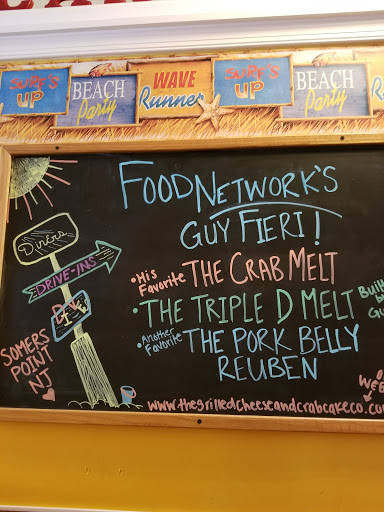 SURF'S UP
BEACH Party
WAVE Runner
SURF'S UP
BEACH Party
FOOD NETWORK'S
GUY FIERI!
• His Favorite THE CRAB MELT
• THE TRIPLE D MELT
• Another Favorite THE PORK BELLY
REUBEN
Diners
DRIVE-INS
SOMERS
POINT
NJ
www.thegrilledcheeseandcrabcakeco.com